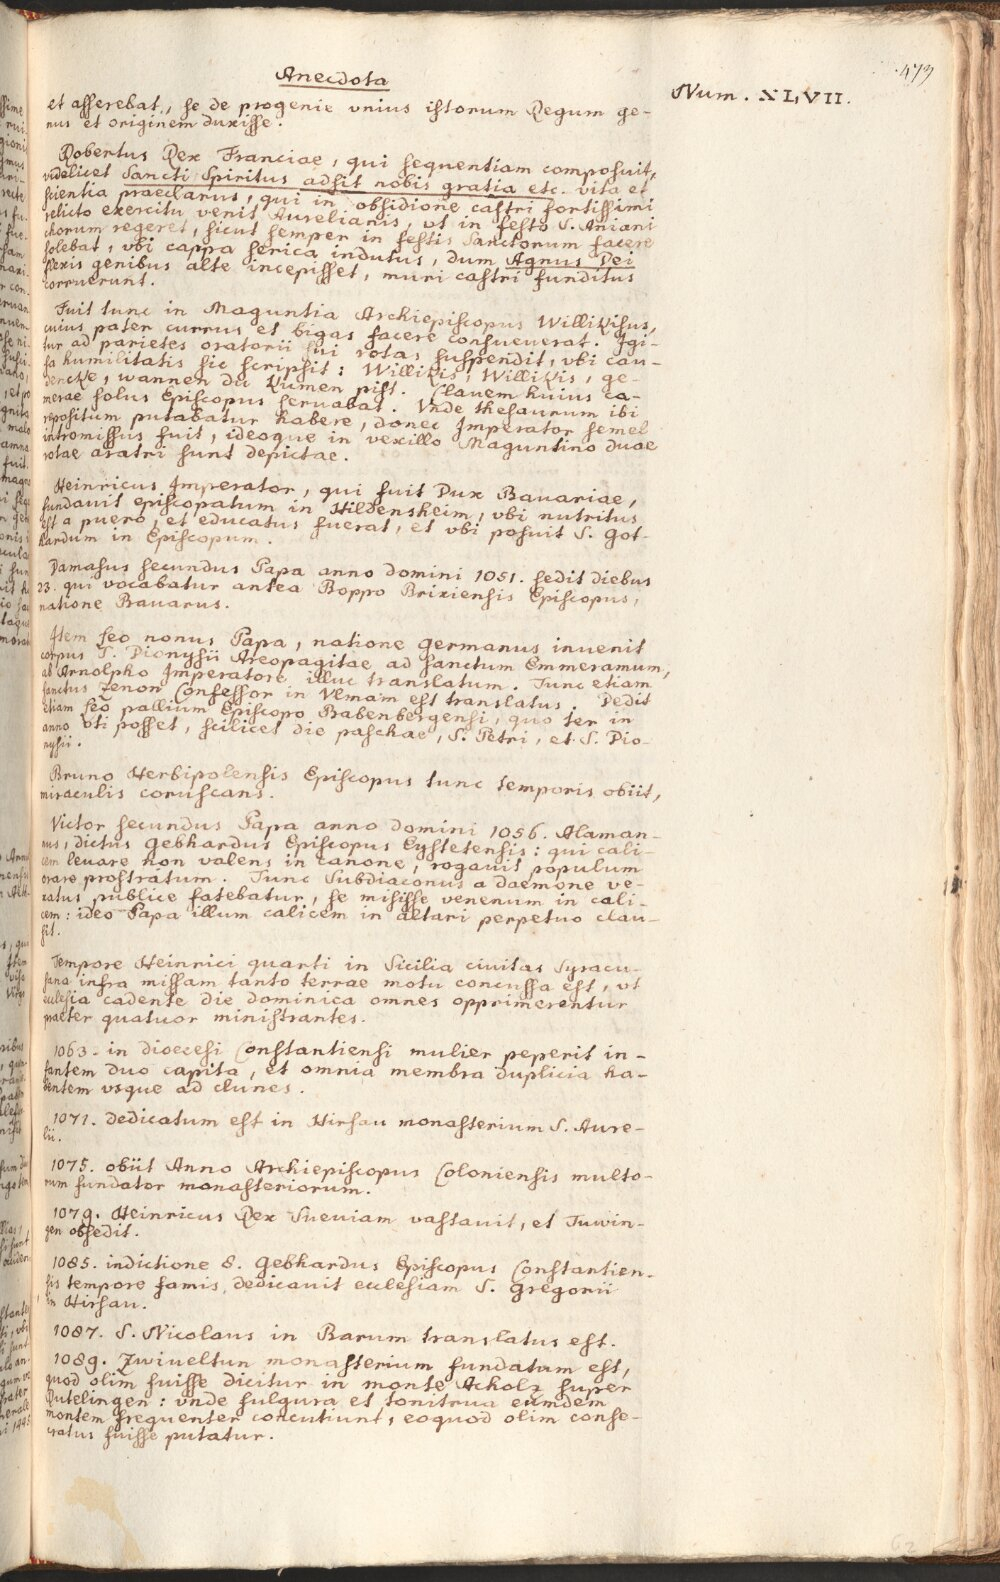 473
Anecdota
Num. XLVII.
et asserebat, se de progenie vnius istorum Regum ge-
nus et originem duxisse.
Robertus Rex Franciae, qui sequentiam composuit,
videlicet Sancti Spiritus adsit nobis gratia etc. vita et
scientia praeclarus, qui in obsidione castri fortissimi
relicto exercitu venit Aurelianis, vt in festo S. Aniani
chorum regeret, sicut semper in festis Sanctorum facere
solebat, vbi cappa serica indutus, dum Agnus Dei
flexis genibus alte incepisset, muri castri funditus
corruerunt.
Fuit tunc in Maguntia Archiepiscopus Willikisus,
cuius pater currus et bigas facere consueuerat. Igi-
tur ad parietes oratorii sui rotas suspendit, vbi cau-
sa humilitatis sic scripsit: Willikis, Willikis, ge-
dencke, wannen du kumen pist. Clauem huius ca-
merae solus Episcopus seruabat. Vnde thesaurum ibi
repositum putabatur habere, donec Imperator semel
intromissus fuit, ideoque in vexillo Maguntino duae
rotae aratri sunt depictae.
Heinricus Imperator, qui fuit Dux Bauariae,
fundauit episcopatum in Hildensheim, vbi nutritus
est a puero, et educatus fuerat, et vbi posuit S. Got-
hardum in Episcopum.
Damasus secundus Papa anno domini 1051. sedit diebus
23. qui vocabatur antea Boppo Brixiensis Episcopus,
natione Bauarus.
Item Leo nonus Papa, natione germanus inuenit
corpus S. Dionysii Areopagitae ad sanctum Emmeramum,
ab Arnolpho Imperatore illuc translatum. Tunc etiam
sanctus Zenon Confessor in Vlmam est translatus. Dedit
etiam Leo pallium Episcopo Babenbergensi, quo ter in
anno vti posset, scilicet die paschae, S. Petri, et S. Dio-
nysii.
Bruno Herbipolensis Episcopus tunc temporis obiit,
miraculis coruscans.
Victor secundus Papa anno domini 1056. Alaman-
nus, dictus Gebhardus Episcopus Eystetensis: qui cali-
cem leuare non valens in canone, rogauit populum
orare prostratum. Tunc Subdiaconus a daemone ve-
xatus publice fatebatur, se misisse venenum in cali-
cem: ideo Papa illum calicem in altari perpetuo clau-
sit.
Tempore Heinrici quarti in Sicilia ciuitas Syracu-
sana infra missam tanto terrae motu concussa est, vt
ecclesia cadente die dominica omnes opprimerentur
praeter quatuor ministrantes.
1063. in dioecesi Constantiensi mulier peperit in-
fantem duo capita, et omnia membra duplicia ha-
bentem vsque ad clunes.
1071. dedicatum est in Hirsau monasterium S. Aure-
lii.
1075. obiit Anno Archiepiscopus Coloniensis multo-
rum fundator monasteriorum.
1079. Heinricus Rex Sueuiam vastauit, et Tuwin-
gen obsedit.
1085. indictione 8. Gebhardus Episcopus Constantien-
sis tempore famis dedicauit ecclesiam S. Gregorii
in Hirsau.
1087. S. Nicolaus in Barum translatus est.
1089. Zwiueltun monasterium fundatum est,
quod olim fuisse dicitur in monte Acholz super
Rutelingen: vnde fulgura et tonitrua eumdem
montem frequenter concutiunt, eoquod olim conse-
cratus fuisse putatur.